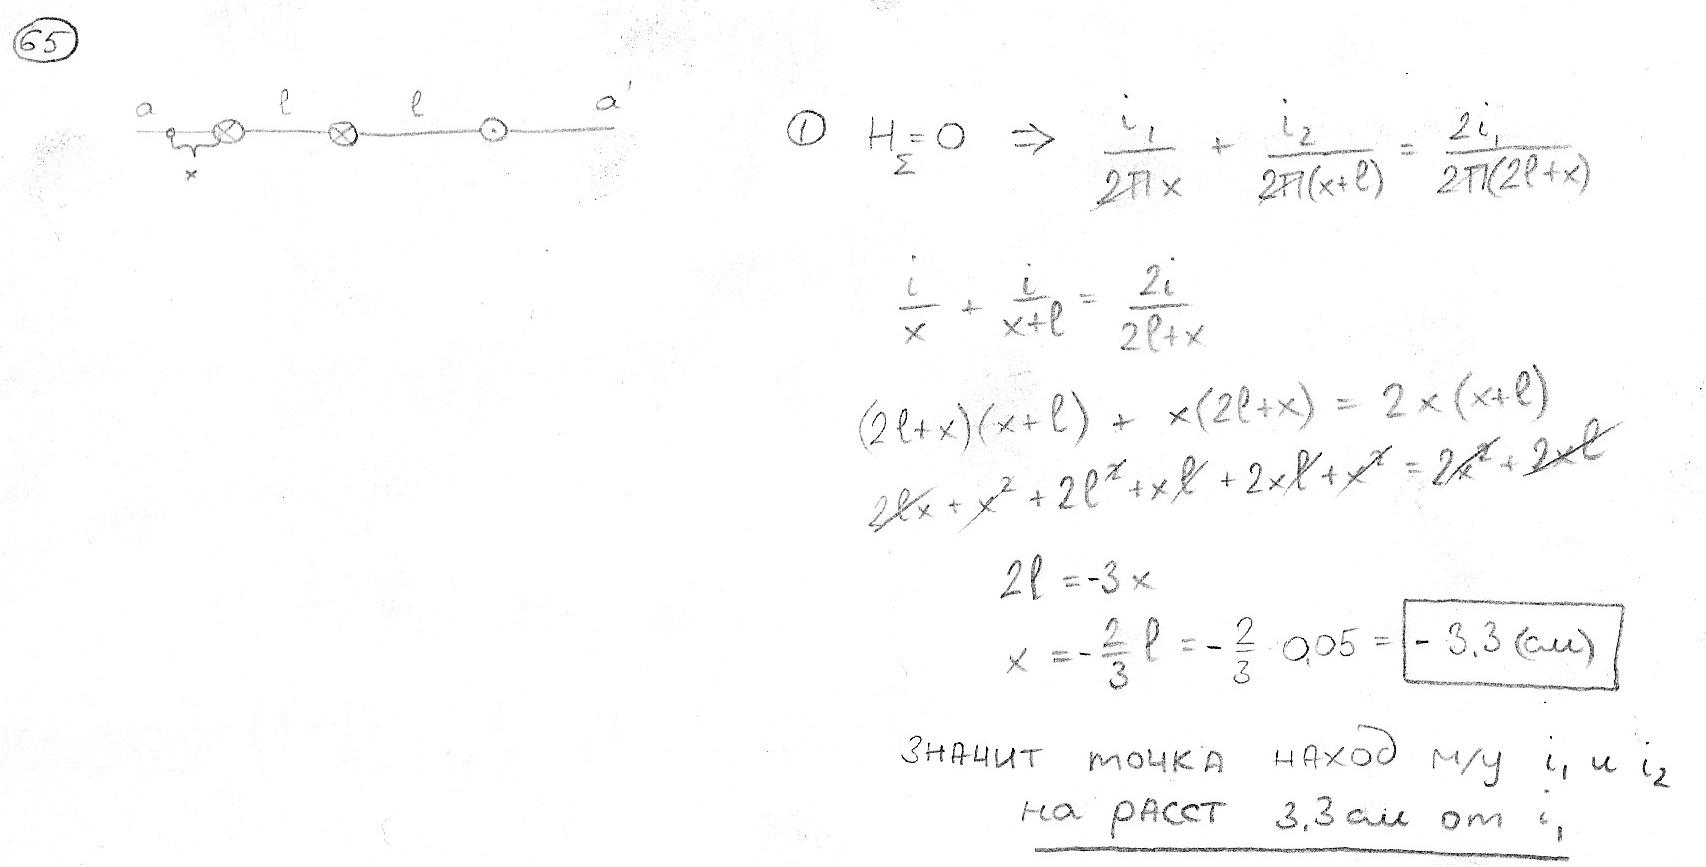 65
a l l a'
x
① H_Σ = 0 ⇒ i₁/(2πx) + i₂/(2π(x+l)) = 2i₁/(2π(2l+x))
i/x + i/(x+l) = 2i/(2l+x)
(2l+x)(x+l) + x(2l+x) = 2x(x+l)
2lx + x² + 2l² + xl + 2xl + x² = 2x² + 2xl
2l = -3x
x = -2/3 l = -2/3 0,05 = -3.3 (см)
значит точка наход м/у i₁ и i₂
на расст 3.3 см от i₁